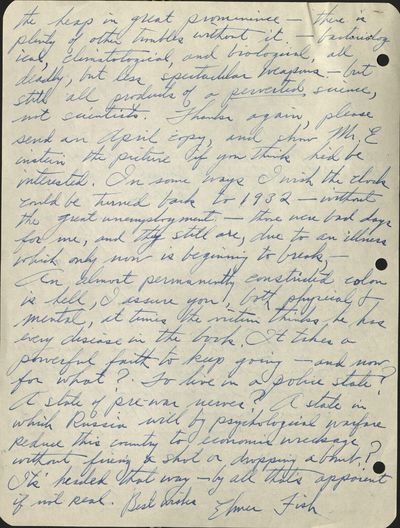 the heap in great prominence — there is
plenty of other troubles without it — bacteriolog
ical, climatological, and biological, all
deadly, but less spectacular weapons — but
still all products of a perverted science,
not scientists. Thanks again, please
send an April copy, and show Mr. E
instein the picture if you think he'd be
interested. In some ways I wish the clock
could be turned back to 1932 — without
the great unemployment — those were bad days
for me, and they still are, due to an illness
which only now is beginning to break, —
An almost permanently constricted colon
is hell, I assure you, both physical &
mental, at times the victim thinks he has
every disease in the book. It takes a
powerful faith to keep going — and now
for what? To live in a police state?
A state of pre-war nerves? A state in
which Russia will by psychological warfare
reduce this country to economic wreckage
without firing a shot or dropping a bomb?
Its headed that way — by all thats apparent
if not real. Best wishes Elmer Fish